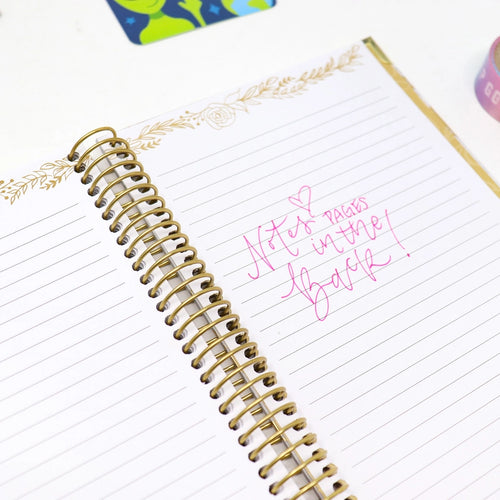 Notes PAGES
in the
Back!
GO